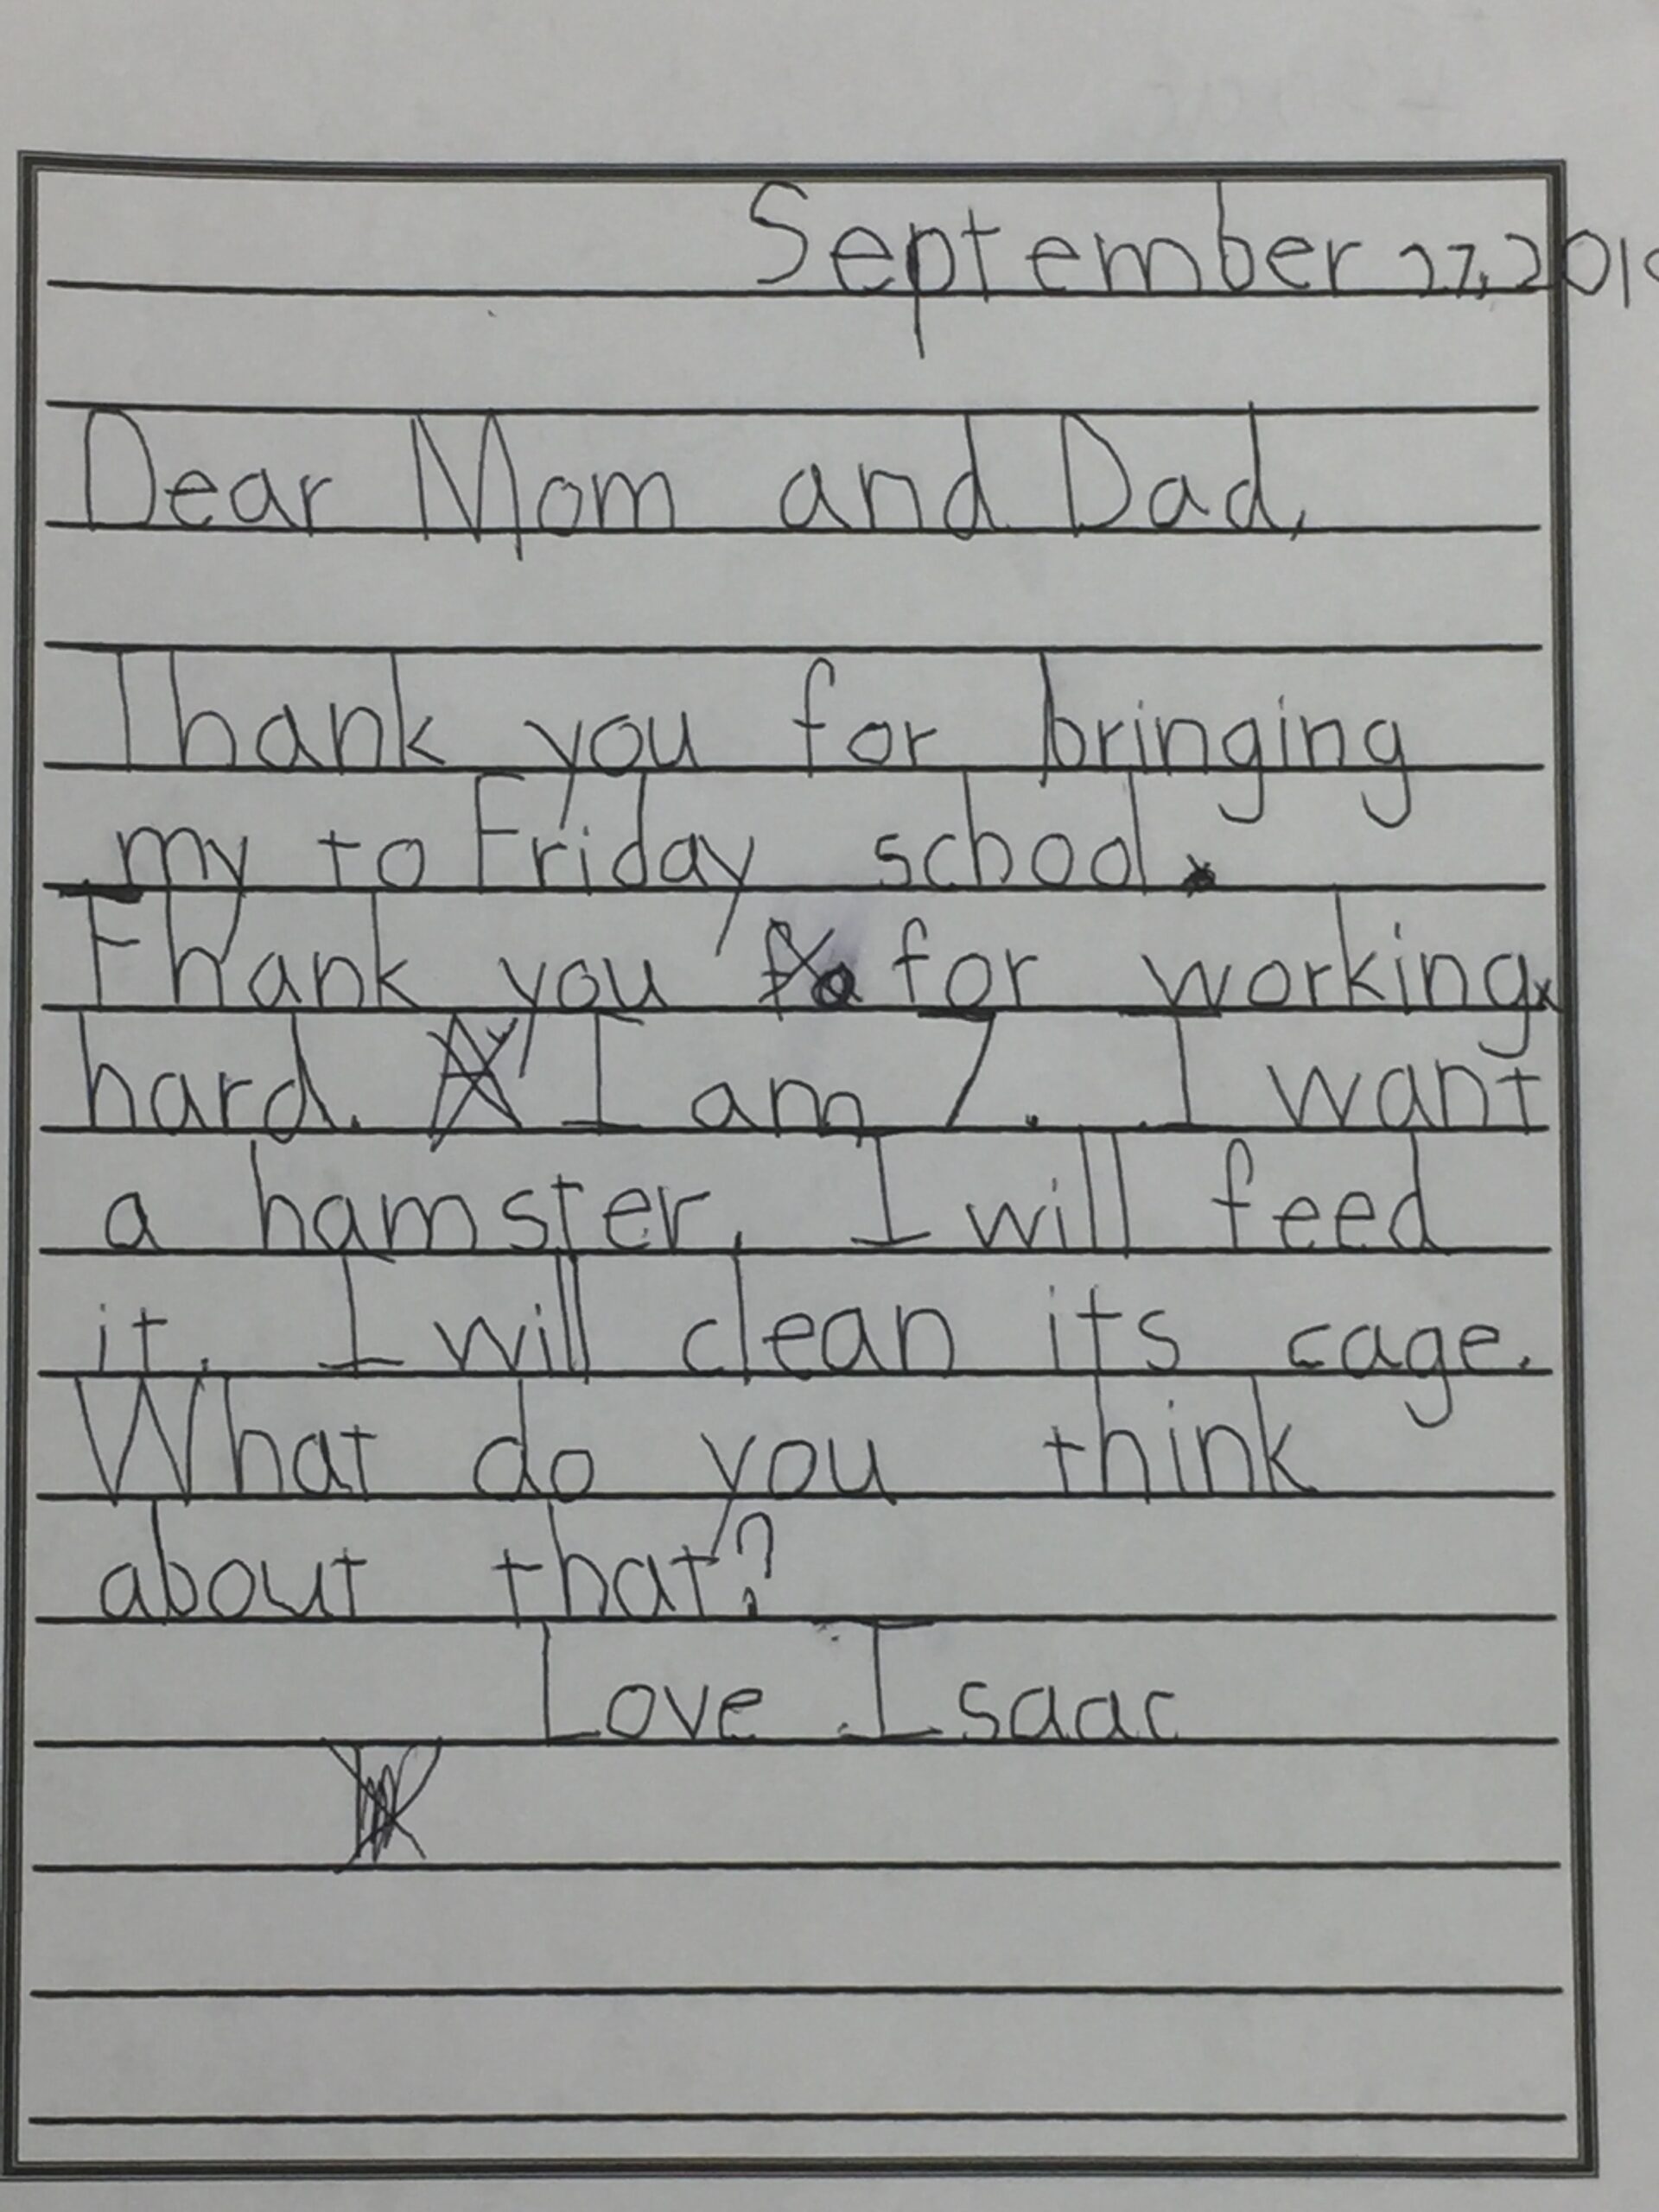 September 27, 201
Dear Mom and Dad,
Thank you for bringing
my to Friday school.
Fhank you for working
hard. I am 7. I want
a hamster. I will feed
it. I will clean its cage.
What do you think
about that?
Love Isaac